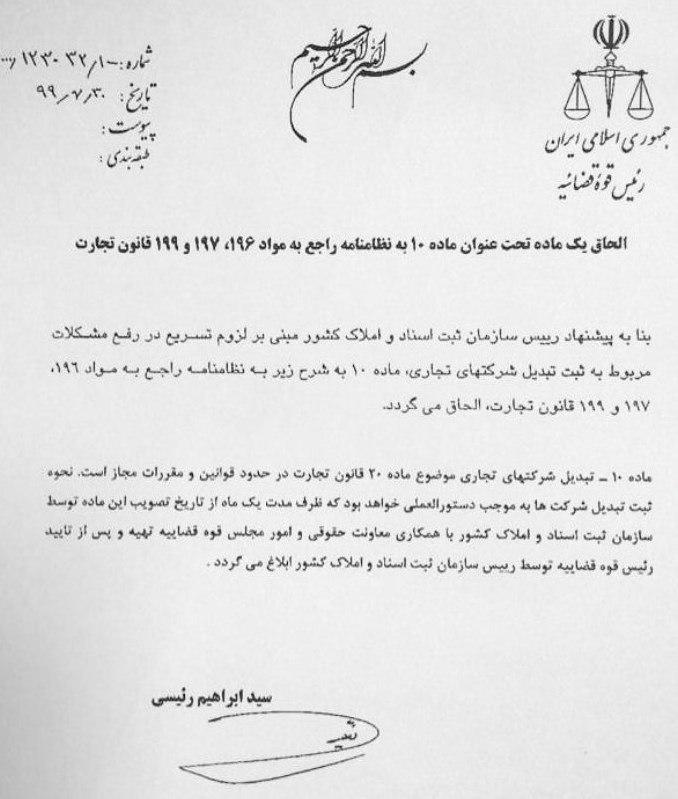 بسم الله الرحمن الرحیم
جمهوری اسلامی ایران
رئیس قوهٔ قضائیه
شماره:
تاریخ: ۹۹/۷/۳۰
پیوست:
طبقه‌بندی:
الحاق یک ماده تحت عنوان ماده ۱۰ به نظامنامه راجع به مواد ۱۹۶، ۱۹۷ و ۱۹۹ قانون تجارت
بنا به پیشنهاد رییس سازمان ثبت اسناد و املاک کشور مبنی بر لزوم تسریع در رفع مشکلات
مربوط به ثبت تبدیل شرکتهای تجاری، ماده ۱۰ به شرح زیر به نظامنامه راجع به مواد ۱۹٦،
۱۹۷ و ۱۹۹ قانون تجارت، الحاق می گردد.
ماده ۱۰ – تبدیل شرکتهای تجاری موضوع ماده ۲۰ قانون تجارت در حدود قوانین و مقررات مجاز است. نحوه
ثبت تبدیل شرکت ها به موجب دستورالعملی خواهد بود که ظرف مدت یک ماه از تاریخ تصویب این ماده توسط
سازمان ثبت اسناد و املاک کشور با همکاری معاونت حقوقی و امور مجلس قوه قضاییه تهیه و پس از تایید
رئیس قوه قضاییه توسط رییس سازمان ثبت اسناد و املاک کشور ابلاغ می گردد .
سید ابراهیم رئیسی